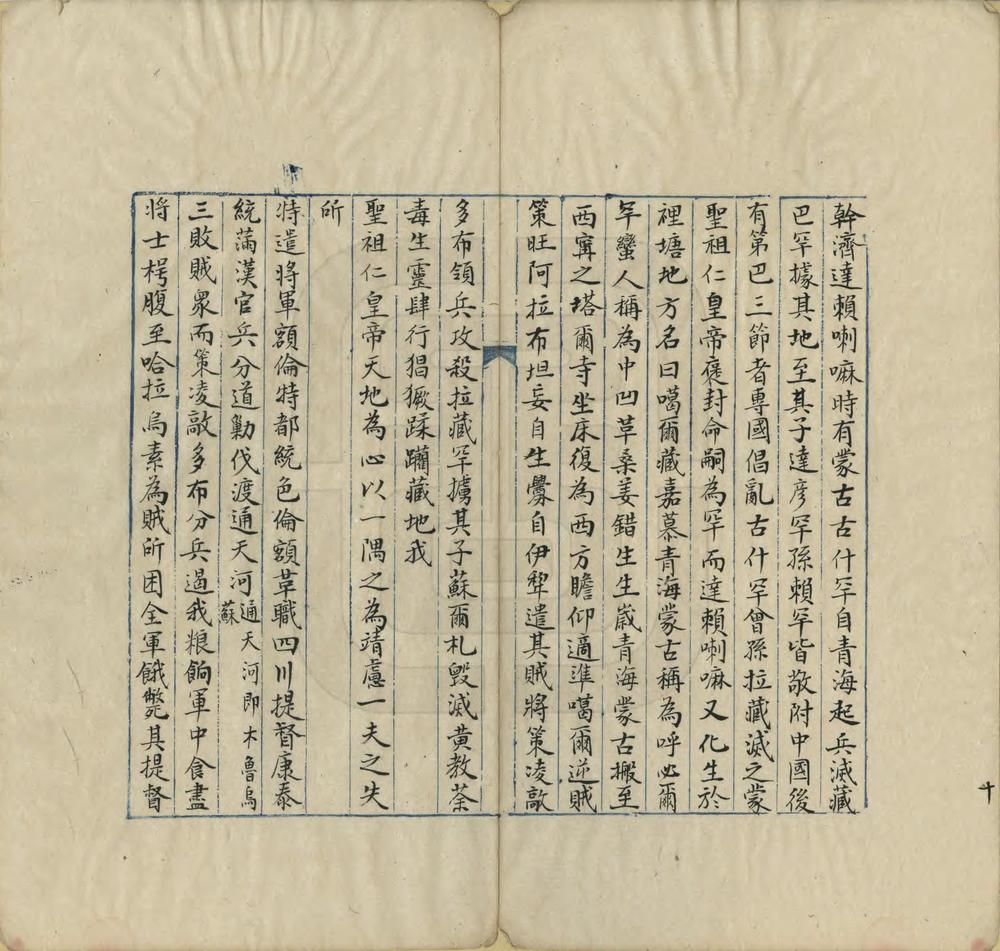 幹濟達賴喇嘛時有蒙古古什罕自青海起兵滅藏
巴罕據其地至其子達彦罕孫賴罕皆敬附中國後
有第巴三節者專國倡亂古什罕曾孫拉藏滅之蒙
聖祖仁皇帝褒封命嗣為罕而達賴喇嘛又化生於
裡塘地方名曰噶爾藏嘉慕青海蒙古稱為呼必爾
罕蠻人稱為中凹草桑姜錯生生嵗青海蒙古搬至
西寗之塔爾寺坐床復為西方瞻仰適準噶爾逆賊
策旺阿拉布坦妄自生釁自伊犂遣其賊將策凌敵
多布領兵攻殺拉藏罕擄其子蘇爾札毀滅黄教荼
毒生靈肆行猖獗蹂躪藏地我
聖祖仁皇帝天地為心以一隅之為靖慮一夫之失
所
特遣將軍額倫特都統色倫額革職四川提督康泰
統蒲漢官兵分道勦伐渡通天河通天河即木魯烏蘇
三敗賊眾而策凌敵多布分兵遏我粮餉軍中食盡
將士枵腹至哈拉烏素為賊所困全軍餓斃其提督
十